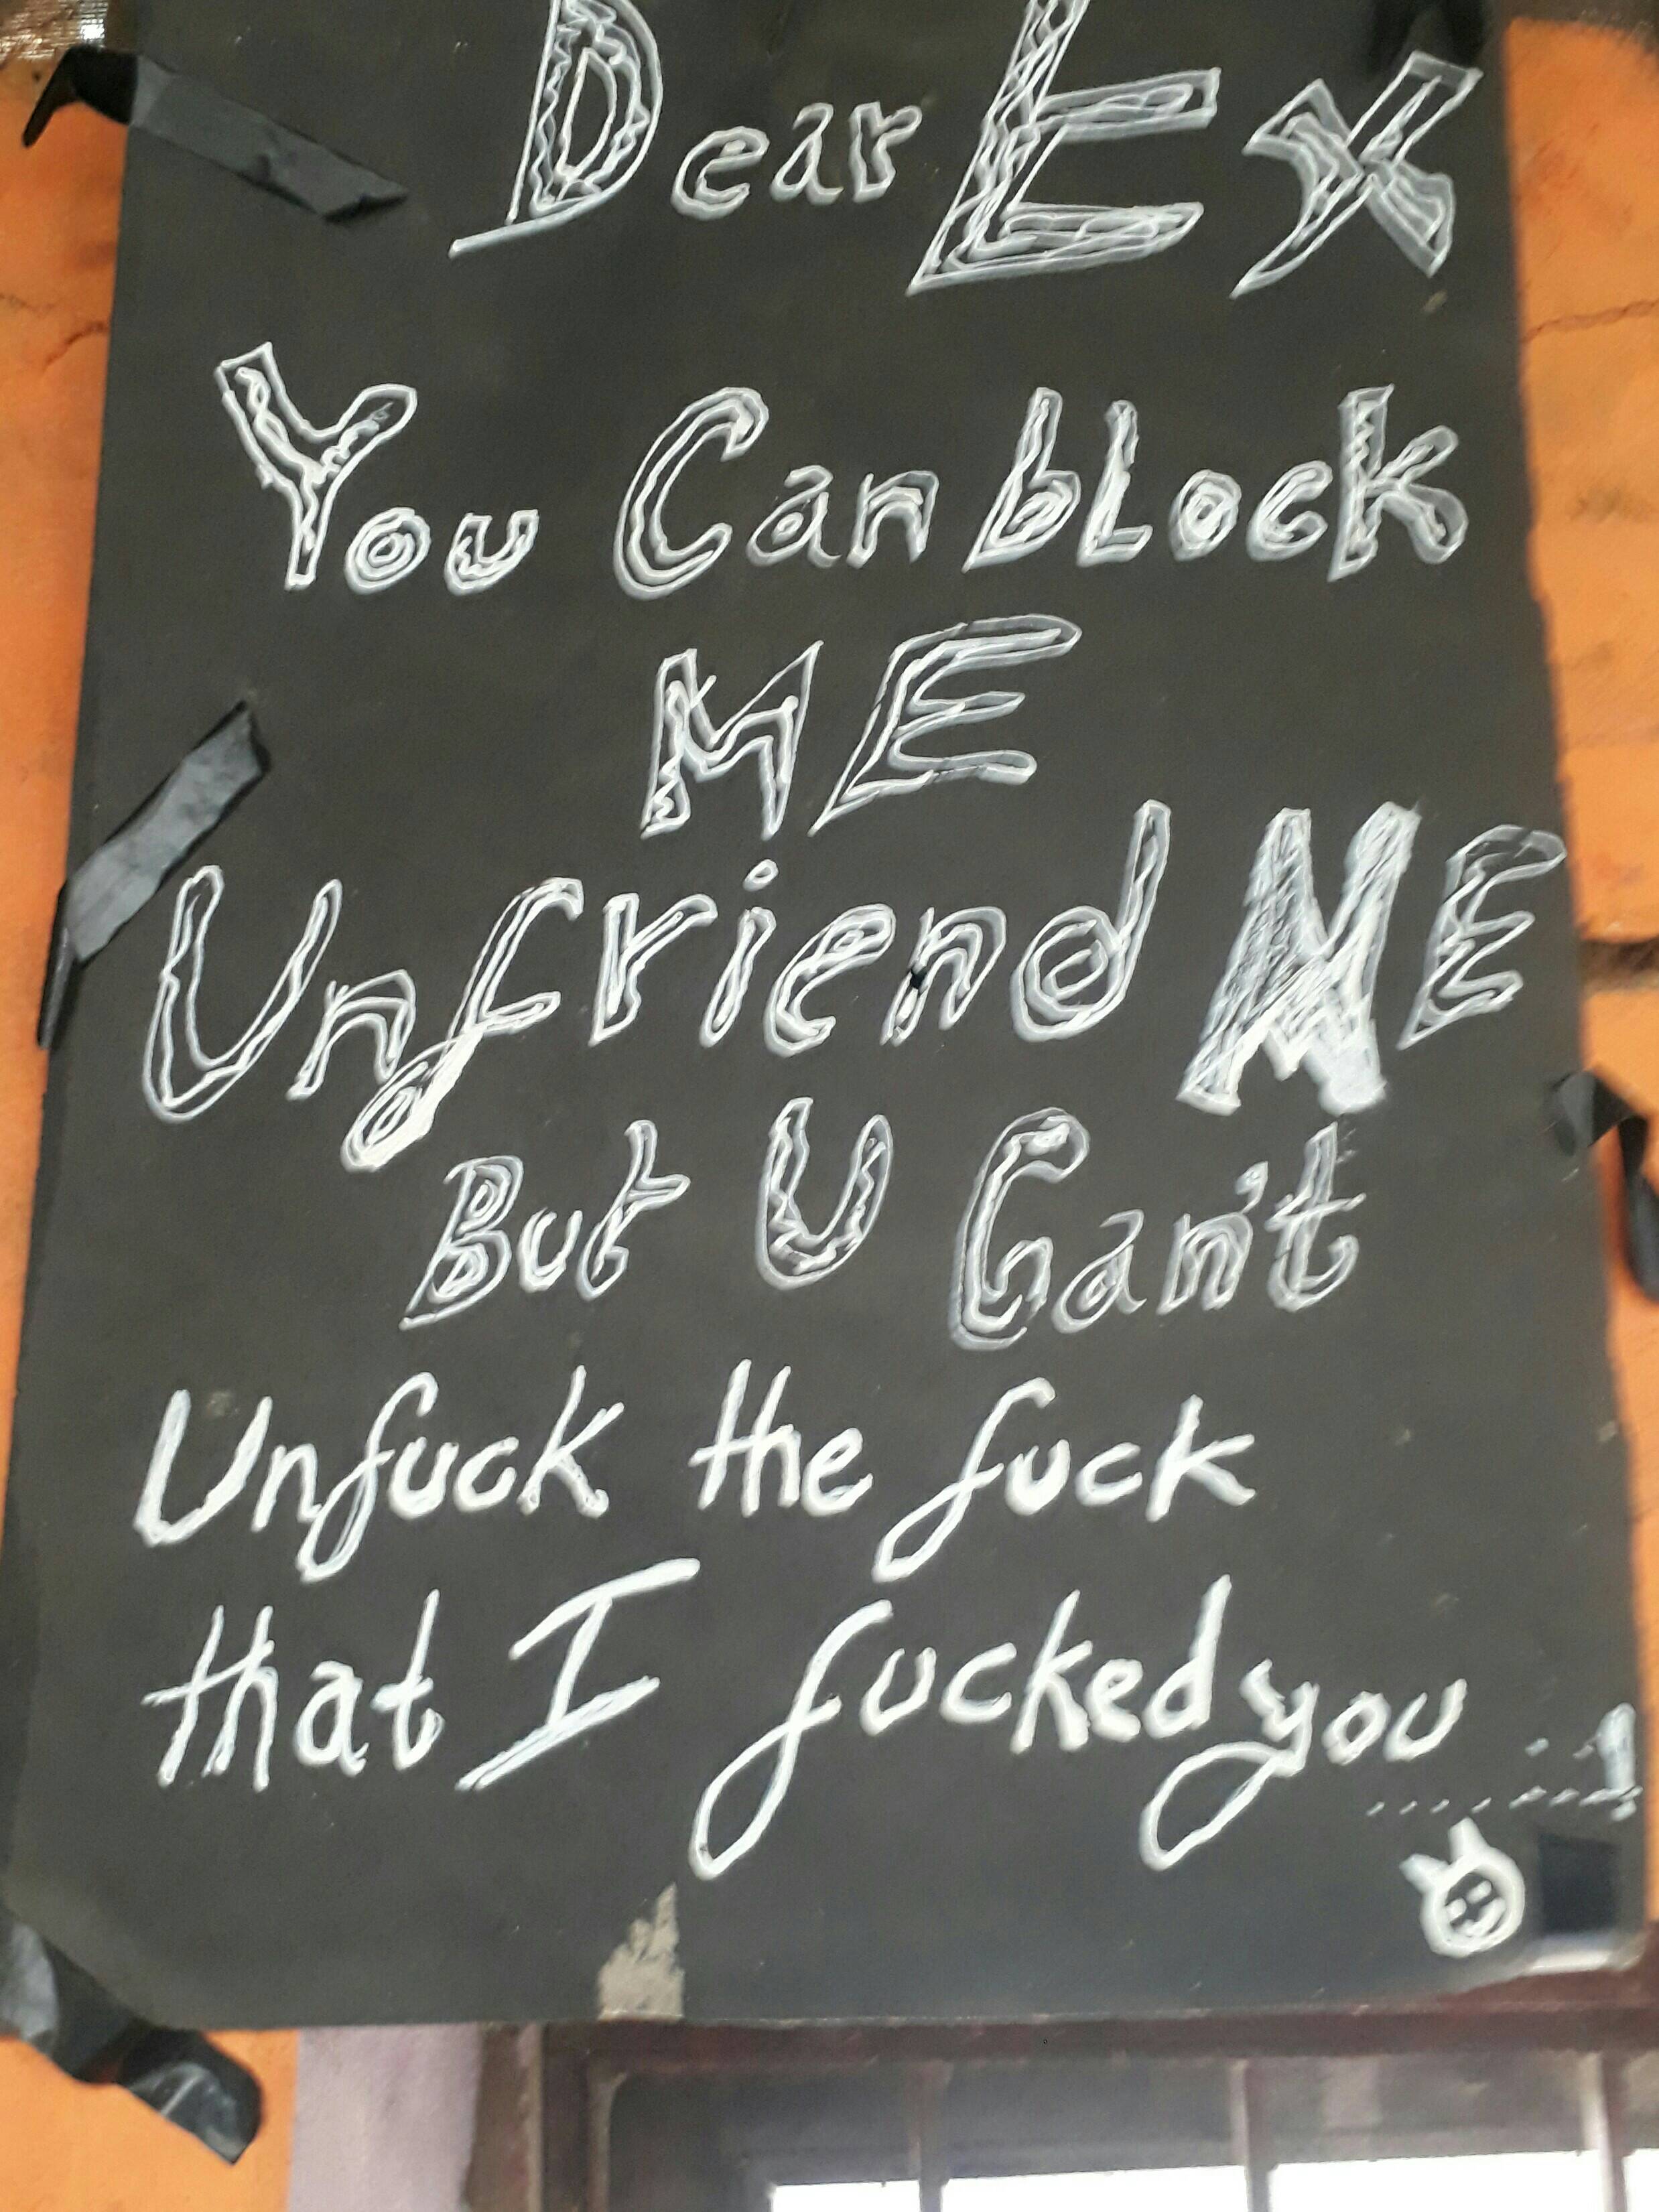 Dear Ex
You Can bLock
ME
Unfriend ME
But U Can't
Unfuck the fuck
that I fucked you ......!